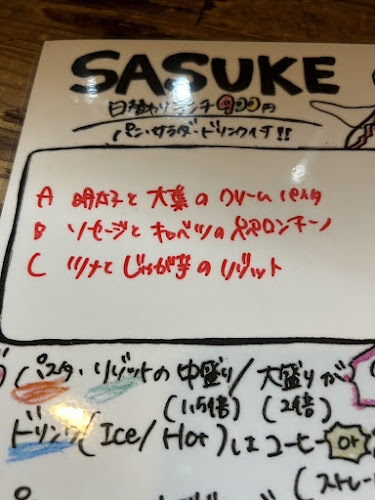 SASUKE
日替わりランチ900円
パン・サラダ・ドリンク付!!
A 明太子と大葉のクリームパスタ
B ソーセージとキャベツのペペロンチーノ
C ツナとじゃが芋のリゾット
パスタ・リゾットの中盛り/大盛りが
(1.5倍) (2倍)
ドリンク(Ice/Hot)はコーヒー or
(ストレー